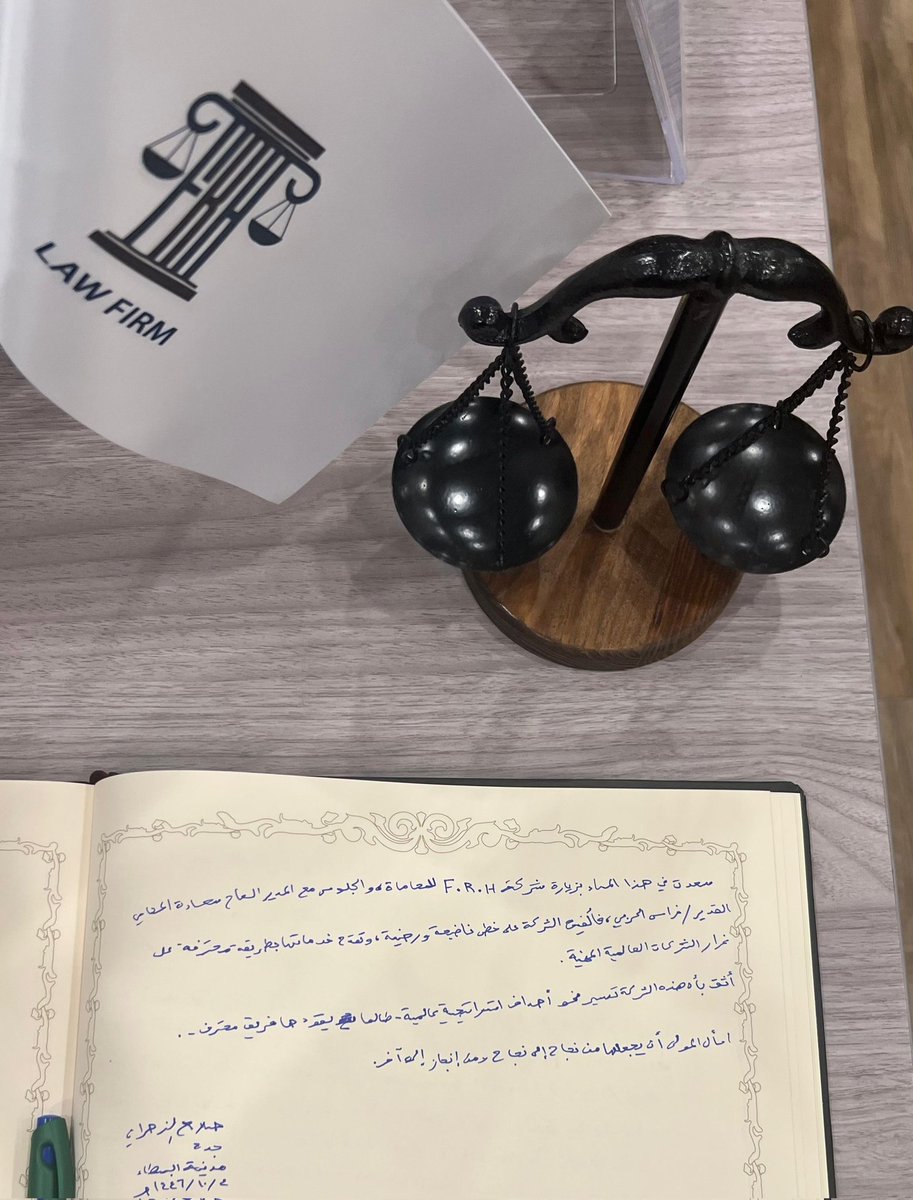 FRH
LAW FIRM
سعدت في هذا المساء بزيارة شركة F.R.H للمحاماة، والجلوس مع المدير العام سعادة المحامي
القدير/فراس الحربي، فألفيت الشركة على خطى ناضجة ورصينة، وتقدم خدماتها بطريقة محترفة على
غرار الشركات العالمية المهنية.
أثق بأن هذه الشركة تسير نحو أهداف استراتيجية عالمية - طالما يقودها فريق محترف -.
اسأل المولى أن يجعلها من نجاح إلى نجاح ومن إنجاز إلى آخر.
صلاح الزهراني
جدة
مدينة البسطاء
١٤٤٦/١٠/٢ هـ